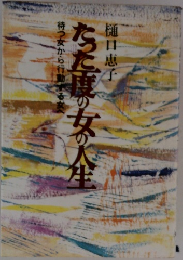 樋口恵子
たった一度の女の人生
待つ女から、行動する女へ